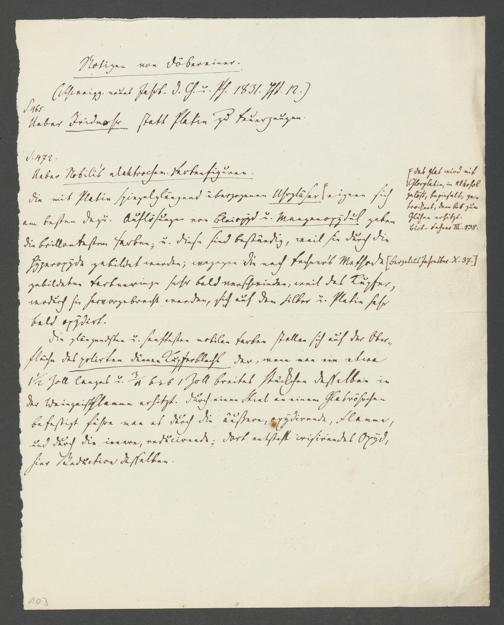 Notizen von Döbereiner.
(Schweigg. neues Jahrb. d. Ch. u. Ph. 1831. Hft 12.)
S. 465.
Ueber Iridmohr statt Platin zu Feuerzeugen.
S. 472.
Ueber Nobili's elektrochem. Farbenfiguren.
Die mit Platin spiegelglänzend überzogenen Uhrgläser eignen sich
am besten dazu. Auflösungen von Bleioxyd u. Manganoxydul geben
die brillantesten Farben; u. diese sind beständig, weil sie durch die
Hyperoxyde gebildet werden; wogegen die nach Fechners Methode [Berzelius Jahresber. X. 37.]
gebildeten Farbenringe sehr bald verschwinden, weil das Kupfer,
wodurch sie hervorgebracht werden, sich auf dem Silber u. Platin sehr
bald oxydirt.
Die glänzendsten u. sanftesten mobilen Farben stellen sich auf der Ober-
fläche des polirten dünnen Kupferblechs dar, wenn man ein etwa
1 1/2 Zoll langes u. bis 1 Zoll breites Stückchen desselben in
der Weingeistflamme erhitzt. Durch einen Stiel an einem Glasröhrchen
befestigt führe man es durch die äußere, oxydirende, Flamme,
und durch die innere, reducirende; dort entsteht irisirendes Oxyd,
hier Reduction desselben.
das Glas wird mit
Chlorplatin, in Alkohol
gelöst, ge-
trocknet, dann bis zum
Glühen erhitzt.
103